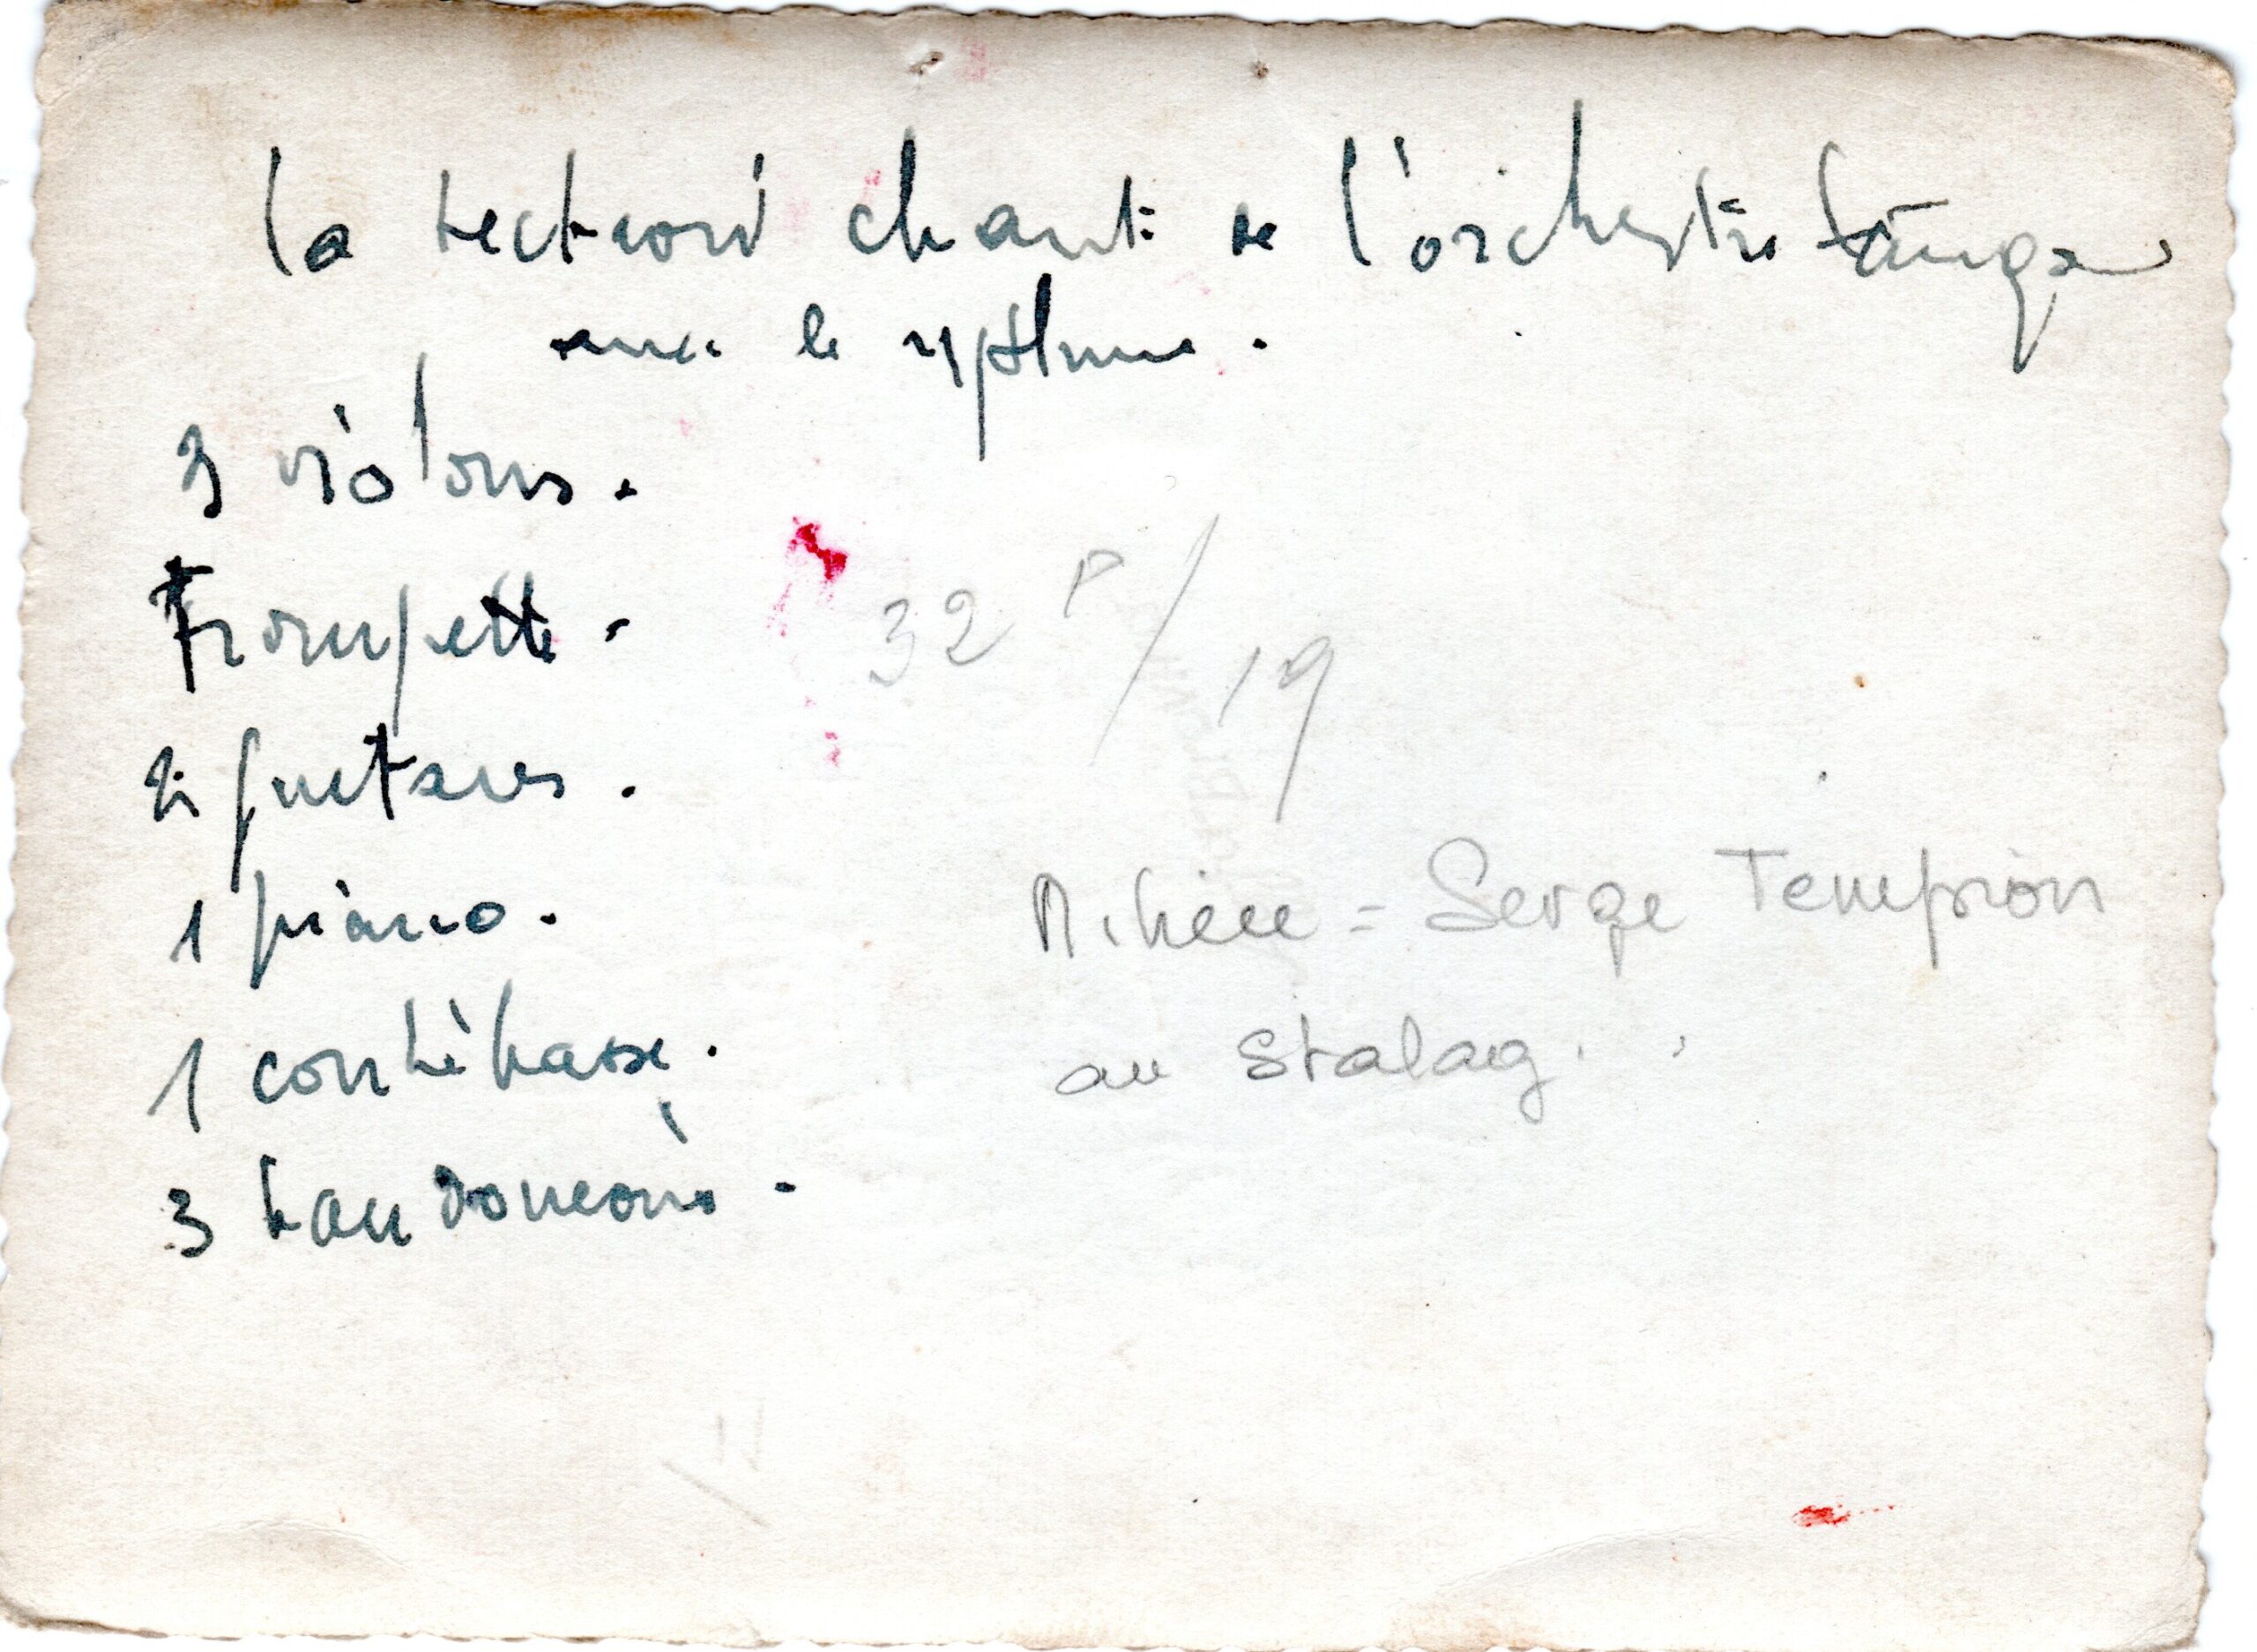 la section chant de l'orchestre tango
avec le rythme.
3 violons.
Trompette.
2 guitares.
1 piano.
1 contrebasse.
3 bandoneons.
32 P/19
= Serge Tempion
au Stalag.